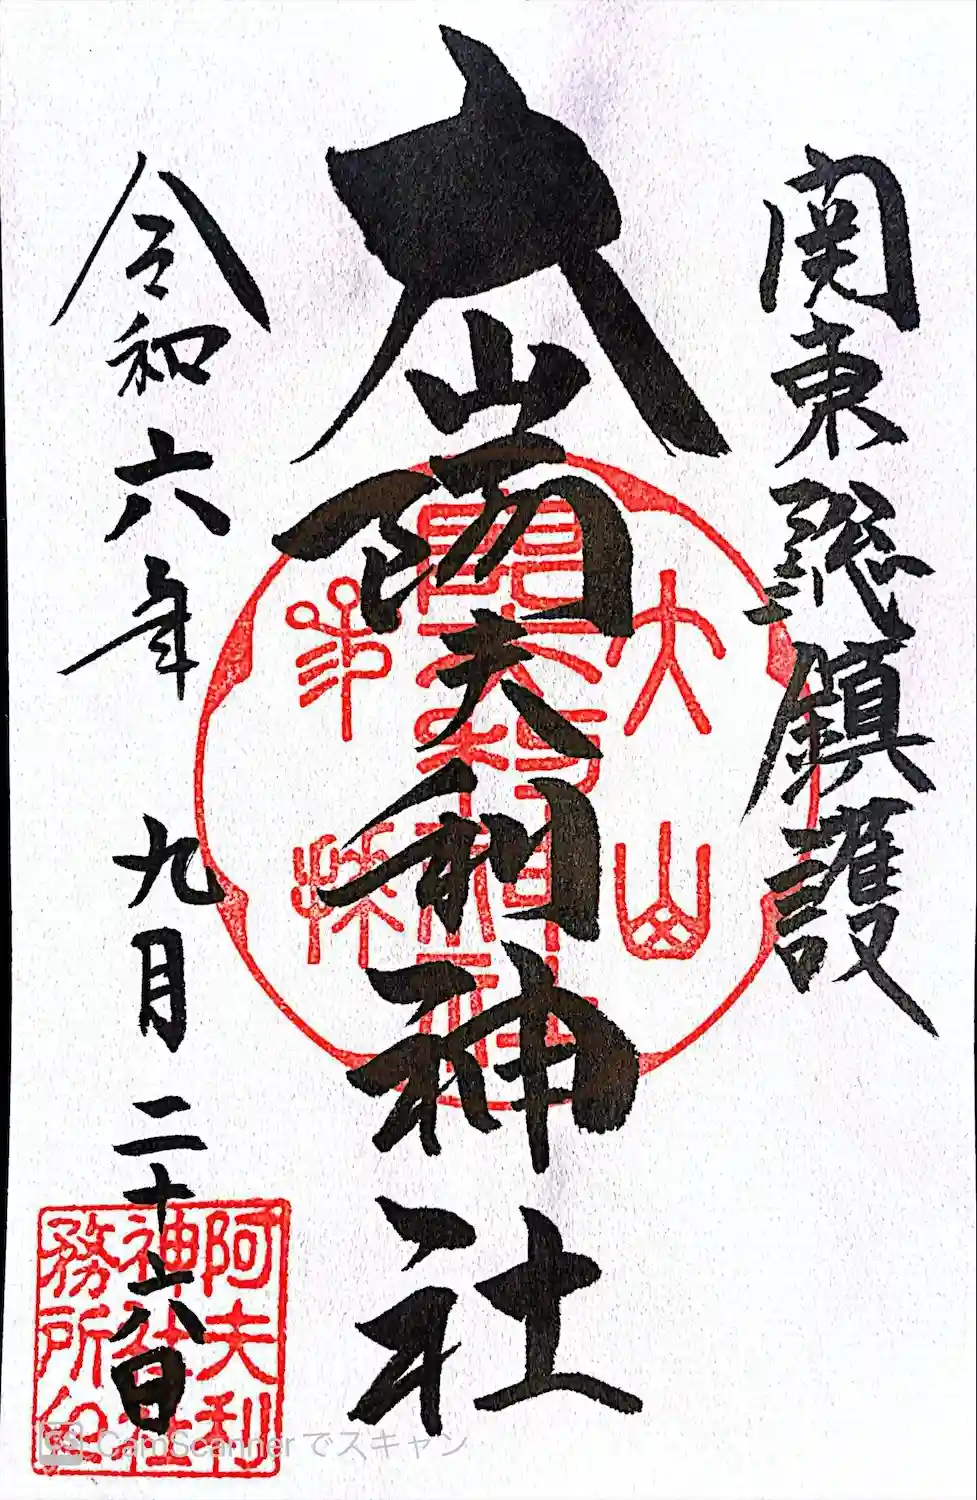 関東総鎮護
大山阿夫利神社
令和六年 九月 二十六日
大山
阿夫利神社
阿夫利
神社社
務所印
CamScannerでスキャン